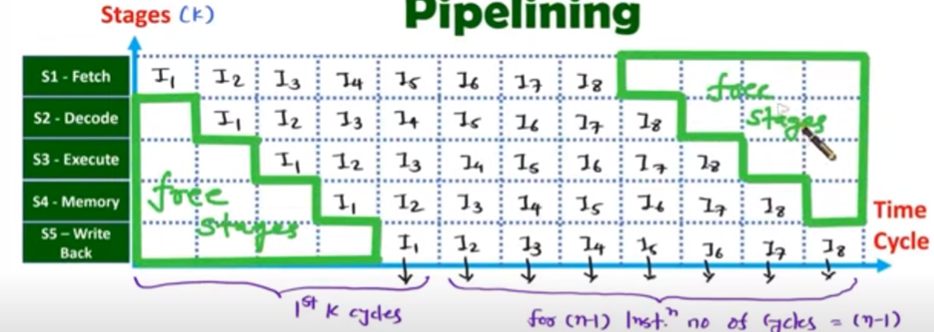 Pipelining
Stages (K)
S1 - Fetch I1 I2 I3 I4 I5 I6 I7 I8
S2 - Decode I1 I2 I3 I4 I5 I6 I7 I8
S3 - Execute I1 I2 I3 I4 I5 I6 I7 I8
S4 - Memory I1 I2 I3 I4 I5 I6 I7 I8
S5 – Write
Back I1 I2 I3 I4 I5 I6 I7 I8
free
stages
free
stages
Time
Cycle
1st K cycles
for (n-1) Inst.n no of Cycles = (n-1)